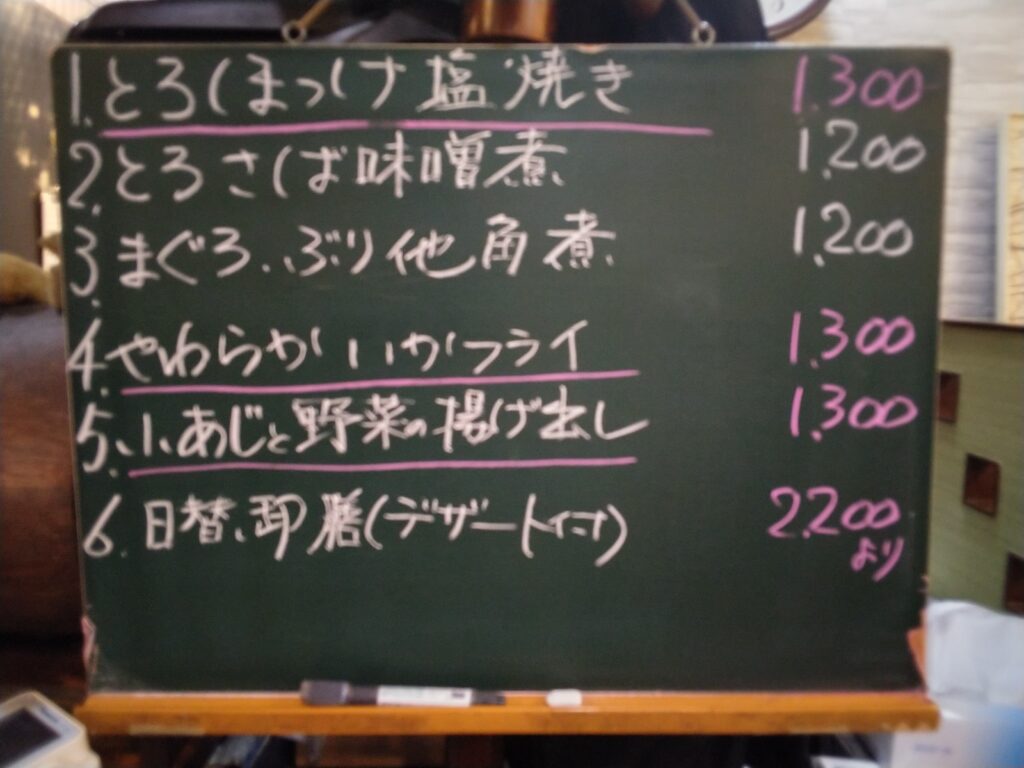 1. とろほっけ塩焼き 1.300
2. とろさば味噌煮 1.200
3. まぐろ、ぶり他角煮 1.200
4. やわらかいかフライ 1.300
5. 小あじと野菜の揚げ出し 1.300
6. 日替、御膳(デザート付) 2.200
より